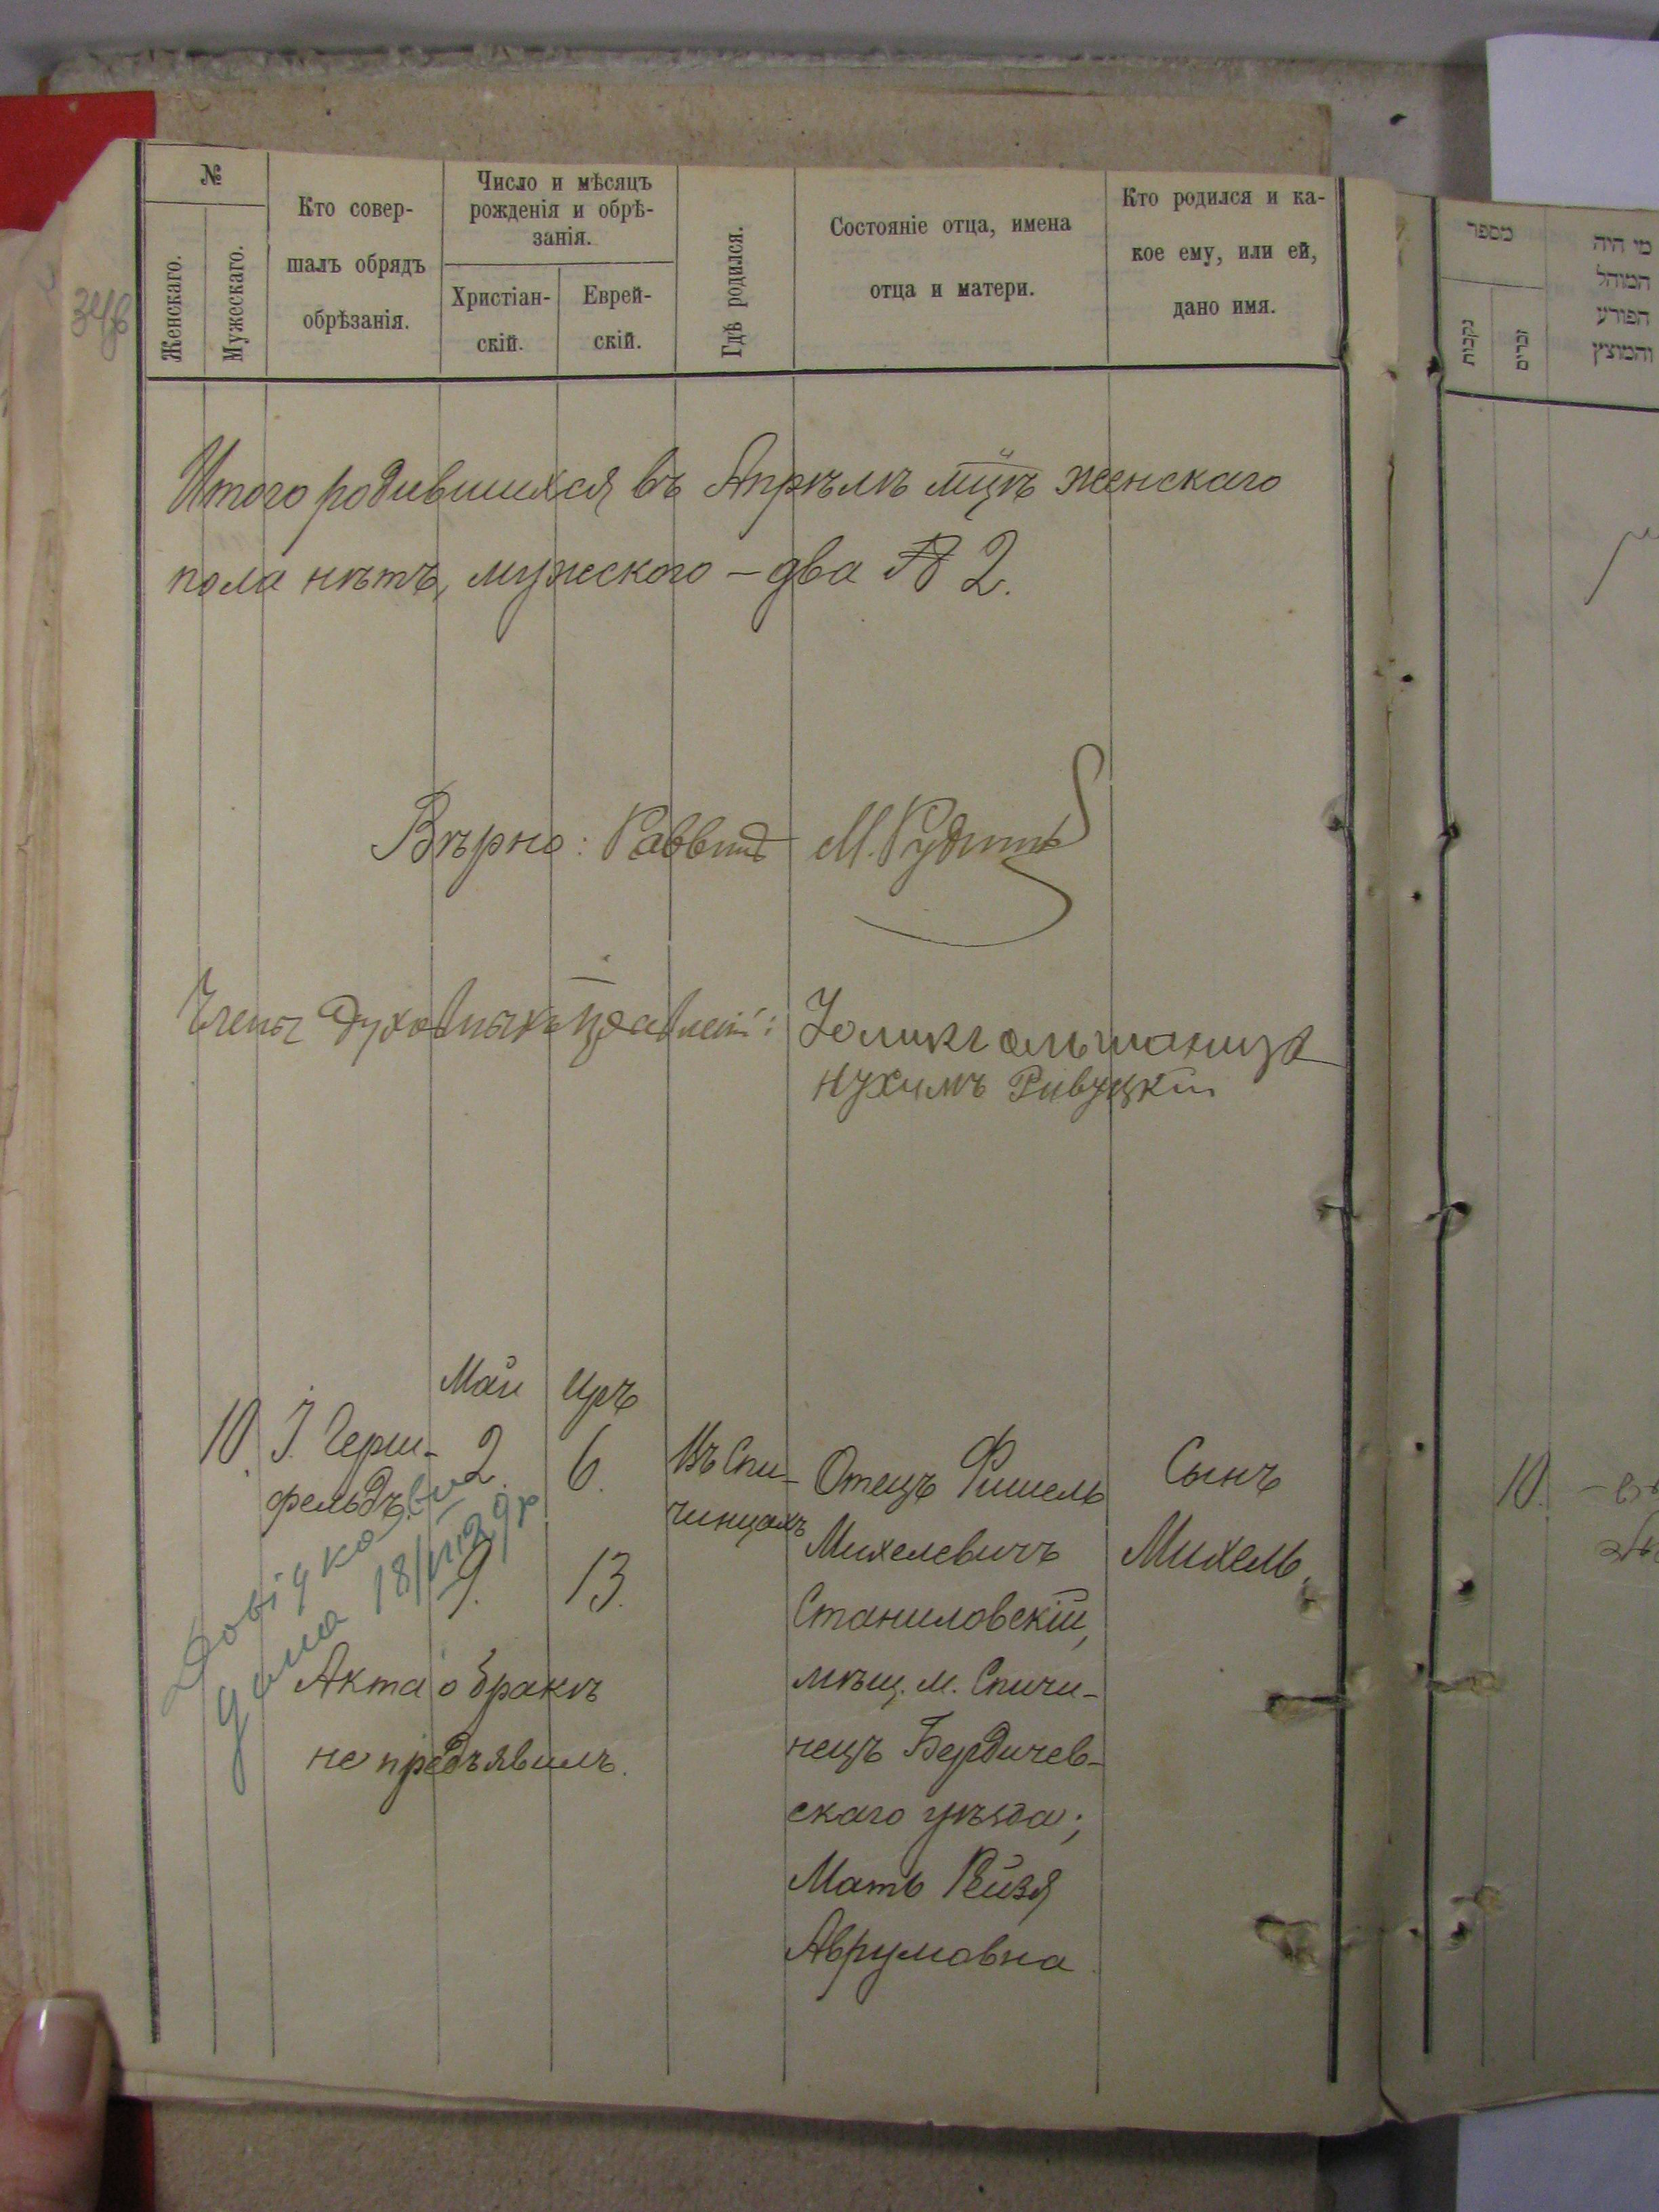 №
Женскаго.
Мужескаго.
Кто совер-
шалъ обрядъ
обрѣзанія.
Число и мѣсяцъ
рожденія и обрѣ-
занія.
Христіан-
скій.
Еврей-
скій.
Гдѣ родился.
Состояніе отца, имена
отца и матери.
Кто родился и ка-
кое ему, или ей,
дано имя.
Итого родившихся въ Апрѣлѣ мцѣ женскаго
пола нѣтъ, мужеского – два № 2.
Вѣрно: Раввинъ М.
Члены Духовныхъ Правленій:
Нухимъ Ривуцкій
Май
Иръ
10. І. Герш-
фельдъ.
2.
6.
9.
13.
Въ Спи-
чинцахъ
Отецъ Фишель
Михелевичъ
Станиловскій,
мѣщ. м. Спичи-
нецъ Бердичев-
скаго уѣзда;
Мать Рейзя
Аврумовна
Сынъ
Михель.
Акта о бракѣ
не предъявилъ.
Довідка
дана 18/VII 29р
מספר
נקבות
זכרים
מי היה
המוהל
הפורע
והמוצץ
10.